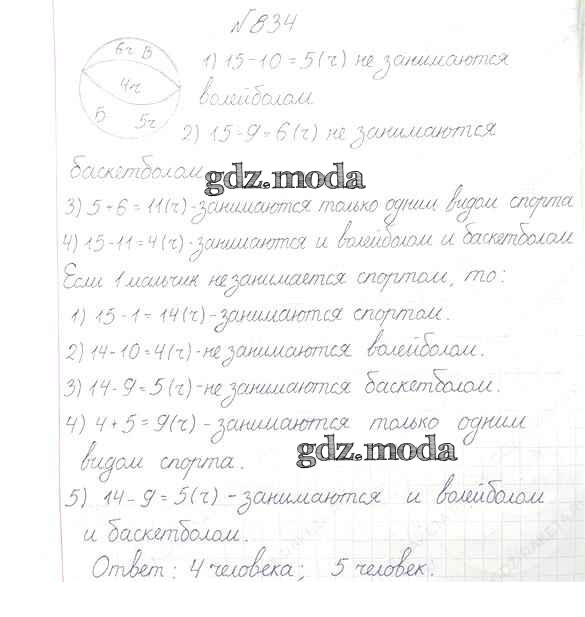 №834
6ч В
4ч
Б 5ч
1) 15-10=5(ч) не занимаются
волейболом.
2) 15-9=6(ч) не занимаются
баскетболом
gdz.moda
3) 5+6=11(ч)-занимаются только одним видом спорта
4) 15-11=4(ч)-занимаются и волейболом и баскетболом
Если 1 мальчик не занимается спортом, то:
1) 15-1=14(ч)-занимаются спортом.
2) 14-10=4(ч)-не занимаются волейболом.
3) 14-9=5(ч)-не занимаются баскетболом.
4) 4+5=9(ч)-занимаются только одним
gdz.moda
видом спорта.
5) 14-9=5(ч)-занимаются и волейболом
и баскетболом.
Ответ: 4 человека; 5 человек.